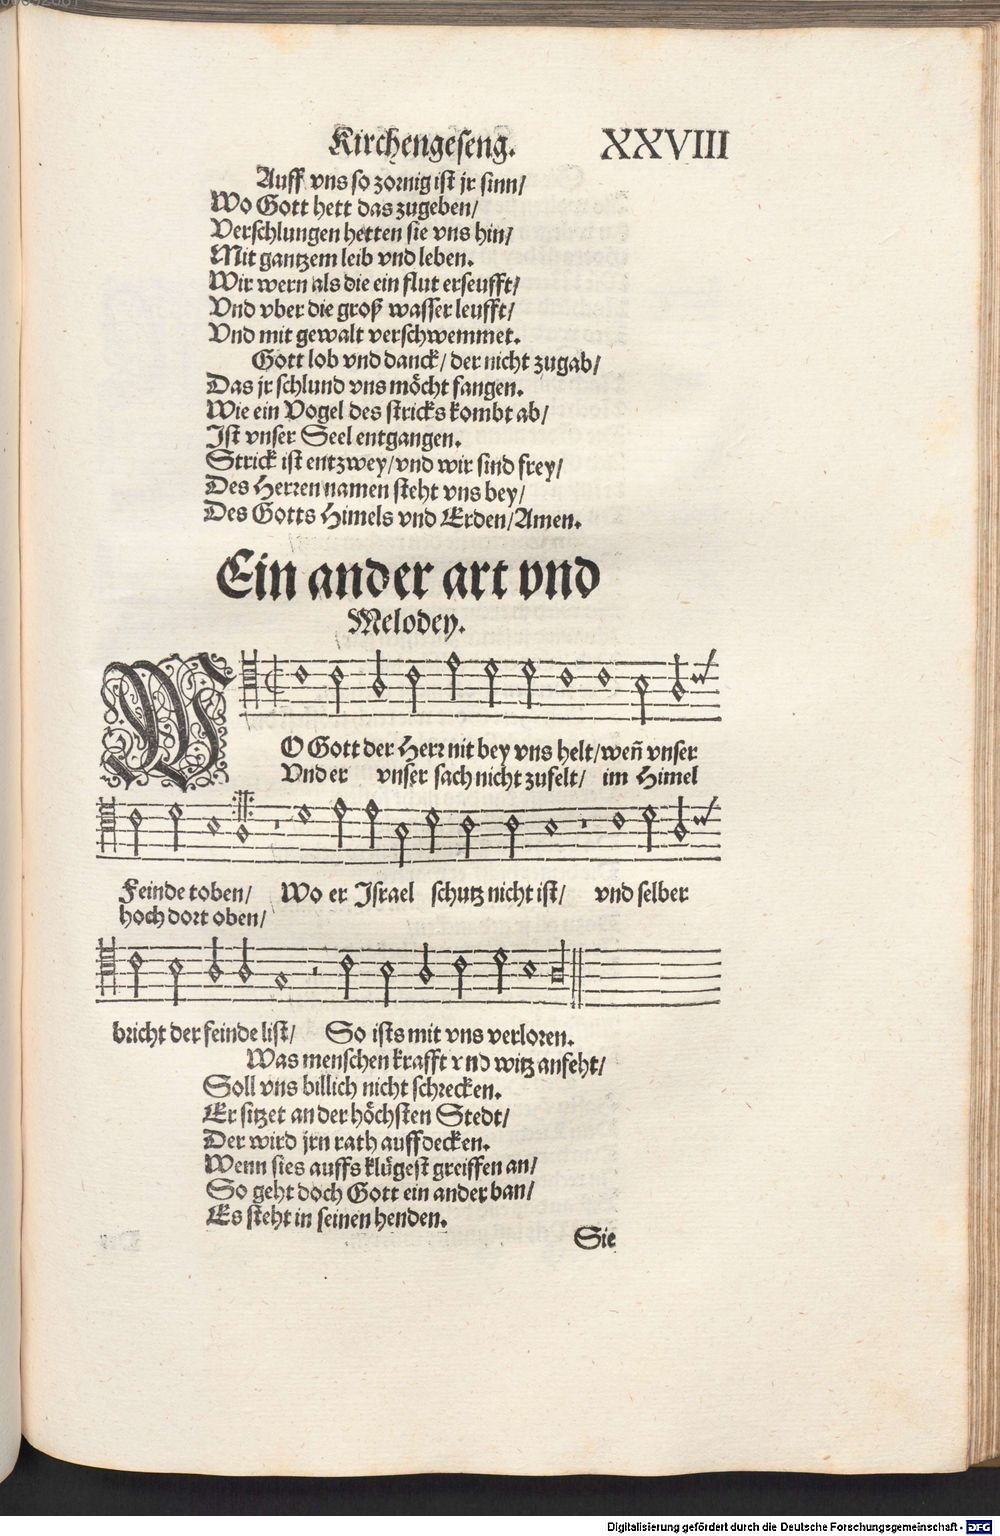 Kirchengeſeng. XXVIII
Auff vns so zornig ist jr sinn/
Wo Gott hett das zugeben/
Verschlungen hetten sie vns hin/
Mit gantzem leib vnd leben.
Wir wern als die ein flut erseufft/
Vnd vber die groß wasser leufft/
Vnd mit gewalt verschwemmet.
Gott lob vnd danck/ der nicht zugab/
Das jr schlund vns möcht fangen.
Wie ein Vogel des stricks kombt ab/
Ist vnser Seel entgangen.
Strick ist entzwey/ vnd wir sind frey/
Des Herren namen steht vns bey/
Des Gotts Himels vnd Erden/ Amen.
Ein ander art vnd
Melodey.
WO Gott der Herr nit bey vns helt/ weñ vnser
Vnd er vnser sach nicht zufelt/ im Himel
Feinde toben/ Wo er Israel schutz nicht ist/ vnd selber
hoch dort oben/
bricht der feinde list/ So ists mit vns verloren.
Was menschen krafft vnd witz anfeht/
Soll vns billich nicht schrecken.
Er sitzet an der höchsten Stedt/
Der wird jrn rath auffdecken.
Wenn sies auffs klügest greiffen an/
So geht doch Gott ein ander ban/
Es steht in seinen henden.
Sie
Digitalisierung gefördert durch die Deutsche Forschungsgemeinschaft - DFG